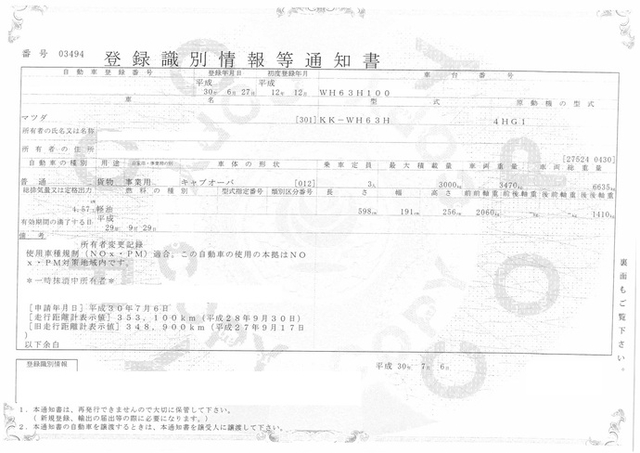 番号 03494 登録識別情報等通知書
自動車登録番号 登録年月日 初度登録年月 車台番号
平成 平成
30年 6月 27日 12年 12月 WH63H100
車名 型式 原動機の型式
マツダ [301] KK-WH63H 4HG1
所有者の氏名又は名称
所有者の住所
[27524 0430]
自動車の種別 用途 自家用・事業用の別 車体の形状 乗車定員 最大積載量 車両重量 車両総重量
普通 貨物 事業用 キャブオーバ [012] 3人 3000kg 3470kg 6635kg
総排気量又は定格出力 燃料の種別 型式指定番号 類別区分番号 長さ 幅 高さ 前前軸重 前後軸重 後前軸重 後後軸重
4.57 軽油 598cm 191cm 256cm 2060kg -kg -kg 1410kg
有効期間の満了する日 平成
29年 9月 29日
備考
所有者変更記録
使用車種規制(NOx・PM)適合、この自動車の使用の本拠はNO
x・PM対策地域内です。
*一時抹消中所有者*
[申請年月日] 平成30年7月6日
[走行距離計表示値] 353,100km (平成28年9月30日)
[旧走行距離計表示値] 348,900km (平成27年9月17日
)
以下余白
裏面もご覧下さい。
登録識別情報
平成 30年 7月 6日
1.本通知書は、再発行できませんので大切に保管して下さい。
(新規登録、輸出の届出等の際に必要になります。)
2.本通知書の自動車を譲渡するときは、本通知書を譲受人に譲渡して下さい。